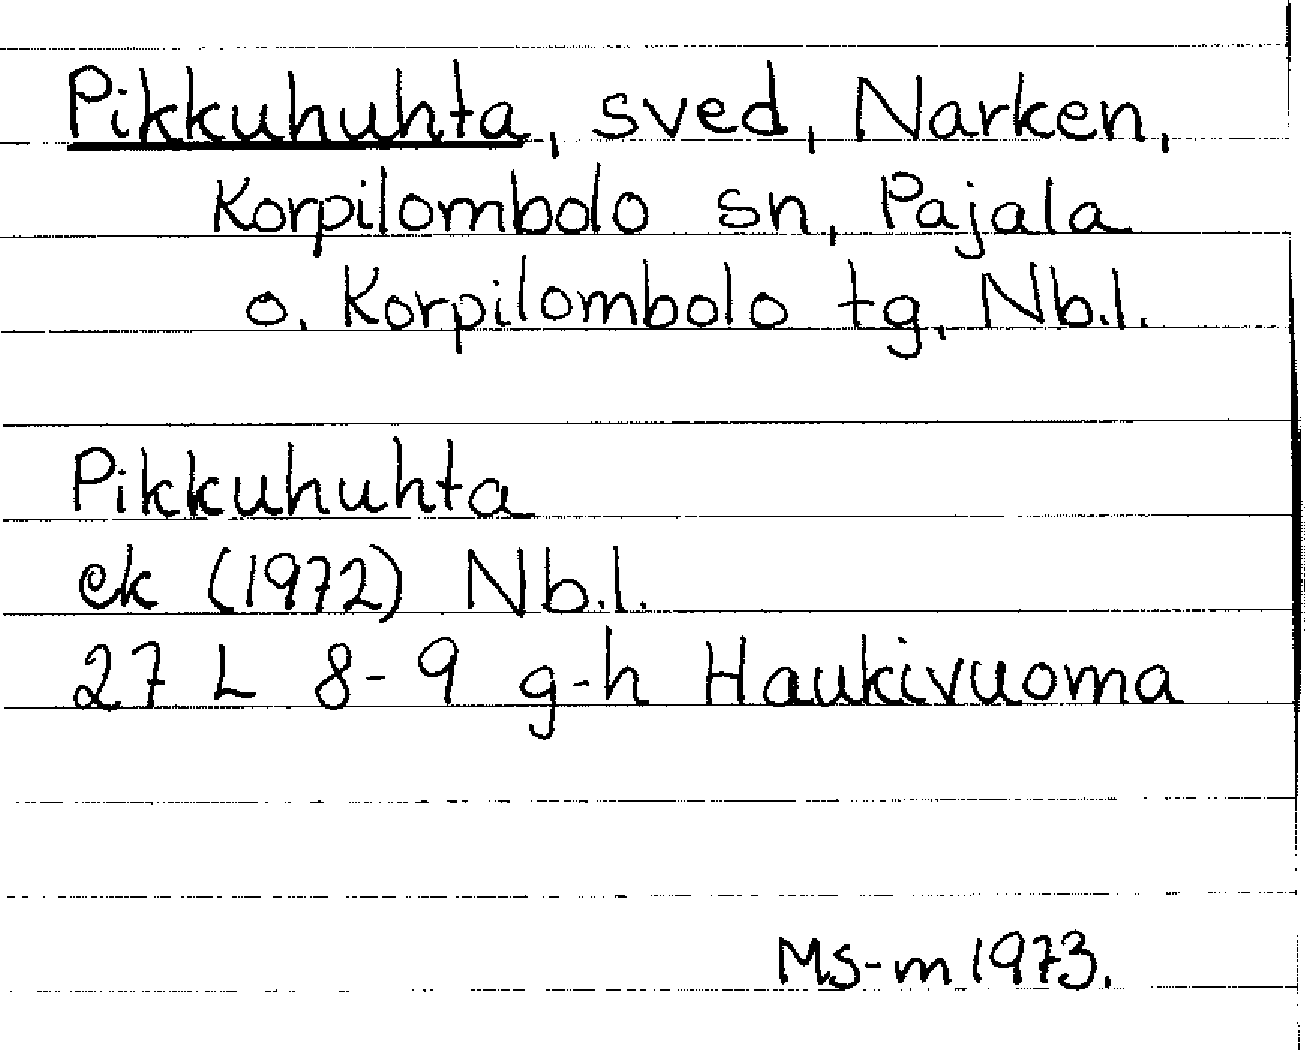 Pikkuhuhta, sved, Narken,
Korpilombolo sn, Pajala
o. Korpilombolo tg, Nb.l.
Pikkuhuhta
ek (1972) Nb.l.
27 L 8-9 g-h Haukivuoma
MS-m 1973.